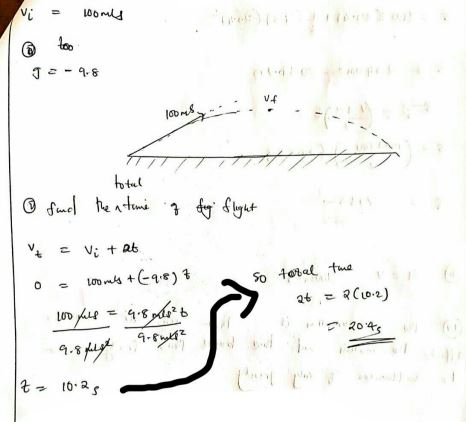 Vi = 100m/s
too
g = -9.8
100m/s
Vf
total
① find the time of flight
Vt = Vi + at
0 = 100m/s + (-9.8) t
100 m/s = 9.8 m/s² t
9.8 m/s² 9.8 m/s²
t = 10.2 s
so total time
2t = 2(10.2)
= 20.4s